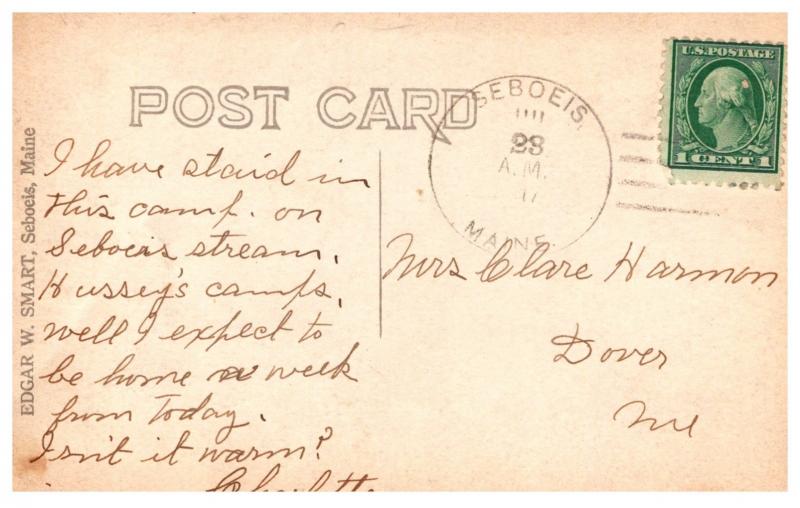 POST CARD
EDGAR W. SMART, Seboeis, Maine
I have staid in
this camp. on
Seboeis stream.
Hussey's camps.
Well I expect to
be home a week
from Today.
Isn't it warm?
SEBOEIS,
23
A.M.
17
MAINE
U.S. POSTAGE
1 CENT 1
Mrs Clare Harmon
Dover
Me